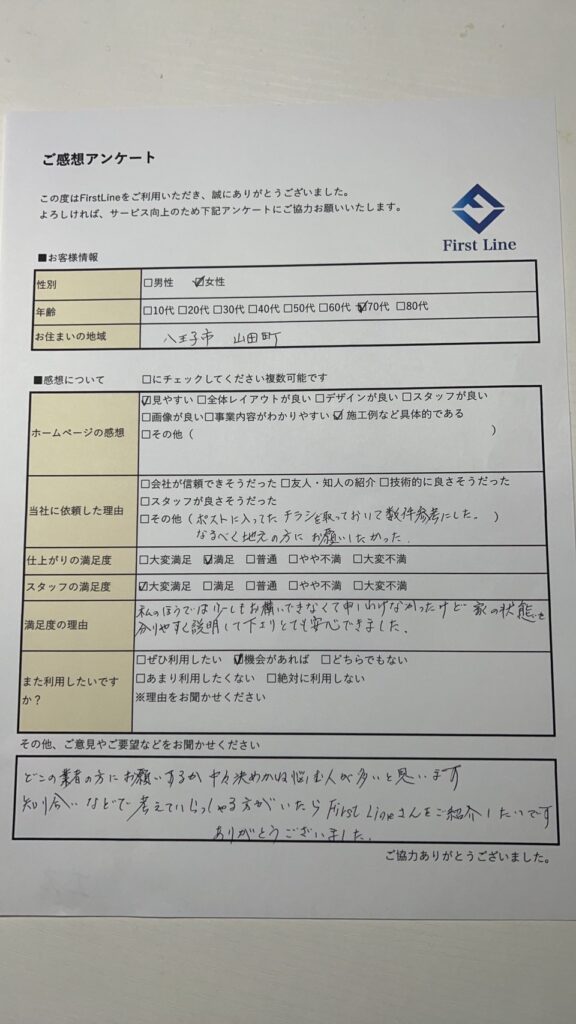 ご感想アンケート
この度はFirstLineをご利用いただき、誠にありがとうございました。
よろしければ、サービス向上のため下記アンケートにご協力お願いいたします。
First Line
■お客様情報
性別 □男性 ☑女性
年齢 □10代 □20代 □30代 □40代 □50代 □60代 ☑70代 □80代
お住まいの地域 八王子市 山田町
■感想について □にチェックしてください複数可能です
ホームページの感想
☑見やすい □全体レイアウトが良い □デザインが良い □スタッフが良い
□画像が良い □事業内容がわかりやすい ☑施工例など具体的である
□その他 ( )
当社に依頼した理由
□会社が信頼できそうだった □友人・知人の紹介 □技術的に良さそうだった
□スタッフが良さそうだった
□その他 (ポストに入ってたチラシを取っておいて数件参考にした。)
なるべく地元の方にお願いしたかった.
仕上がりの満足度 □大変満足 ☑満足 □普通 □やや不満 □大変不満
スタッフの満足度 ☑大変満足 □満足 □普通 □やや不満 □大変不満
満足度の理由
私のほうでは少しもお構いできなくて申しわけなかったけど 家の状態を
分りやすく説明して下さりとても安心できました.
また利用したいですか?
□ぜひ利用したい ☑機会があれば □どちらでもない
□あまり利用したくない □絶対に利用しない
※理由をお聞かせください
その他、ご意見やご要望などをお聞かせください
どこの業者の方にお願いするか 中々決めかね悩む人が多いと思います
知り合いなどで考えていらっしゃる方がいたらFirst Lineさんをご紹介したいです
ありがとうございました.
ご協力ありがとうございました。